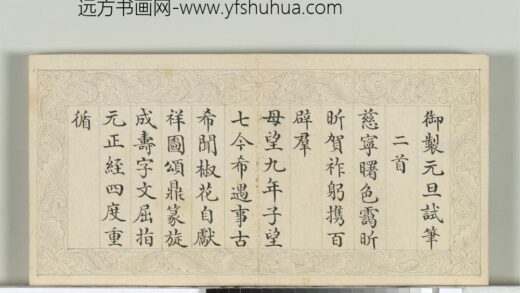 远方书画网-www.yfshuhua.com
御製元旦試筆
二首
慈寧曙色靄昕
昕賀祚躬携百
辟羣
母望九年子望
七今希遇事古
希聞椒花自獻
祥圖頌鼎篆旋
成壽字文屈指
元正経四度重
循